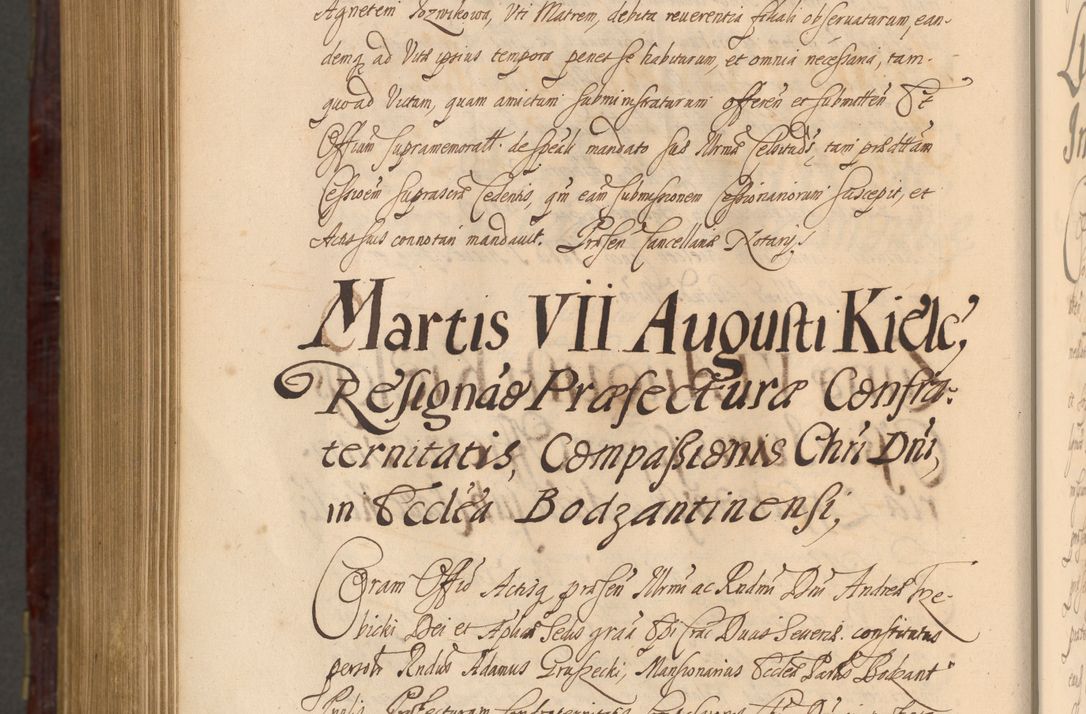 Agnetem Pozwikowa, Uti Matrem, debita reverentia filiali observaturam, ean-
demq ad Vitæ ipsius tempora penes se habituram, et omnia necessaria, tam
quoad Victum, quam amictum subministraturam offeren et submitten Et
Officium supramemoratt. de speciali mandato suæ Illrmæ Celsitudis, tam præattam
Cessioem suprascrip Cedentis, qm eam submissionem Cessionariorum suscepit, et
Actis suis connotari mandavit. Præsen Cancellariæ Notarij.
Martis VII Augusti Kielc,
Resignáo Præfecturæ Confra:
ternitatis, Compaßionis Chri Dni,
in Ecclẽa Bodzantinensi,
Coram Officio Actisq præsen Illrmi ac Rndmi Dni Andreæ Trze-
bicki Dei et Aplicæ Sedis graa Epi Crac Ducis Severiæ. constitutus
personlr Rndus Adamus Gruszecki, Mansionarius Ecclea Parlis Bodzant
Præfecturam Confraternitatis